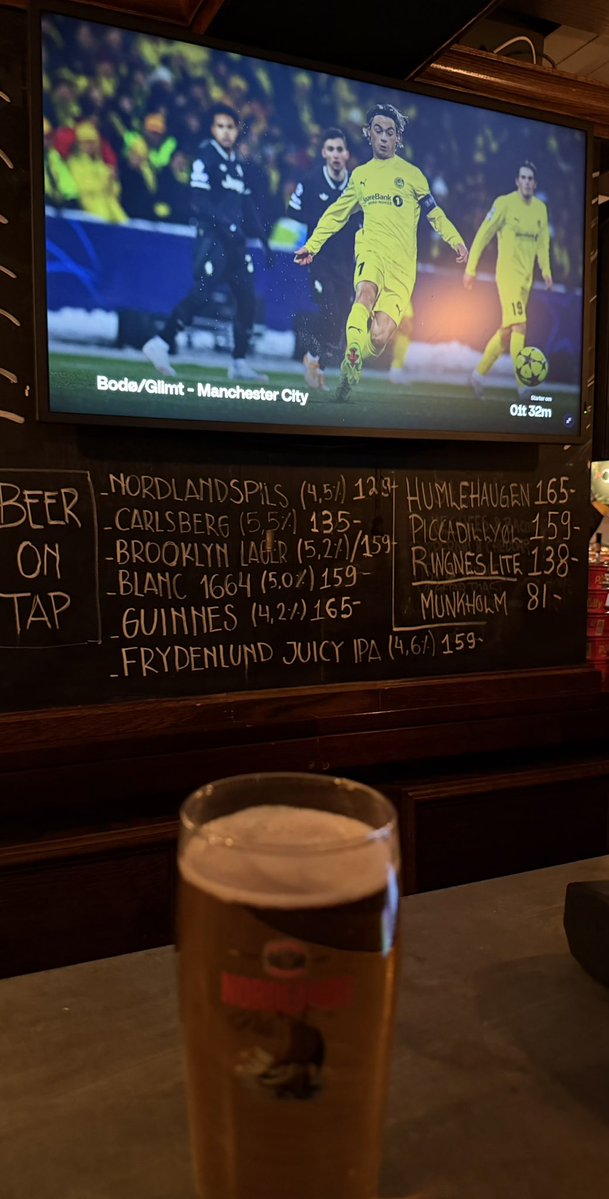 SpareBank 1
7
19
Bodø/Glimt - Manchester City
Starter om
01t 32m
BEER
ON
TAP
-NORDLANDSPILS (4,5%) 129-
-CARLSBERG (5,5%) 135-
-BROOKLYN LAGER (5,2%)/159-
-BLANC 1664 (5,0%) 159-
-GUINNES (4,2%) 165-
-FRYDENLUND JUICY IPA (4,6%) 159-
HUMLEHAUGEN 165-
159-
RINGNES LITE 138-
MUNKHOLM 81-